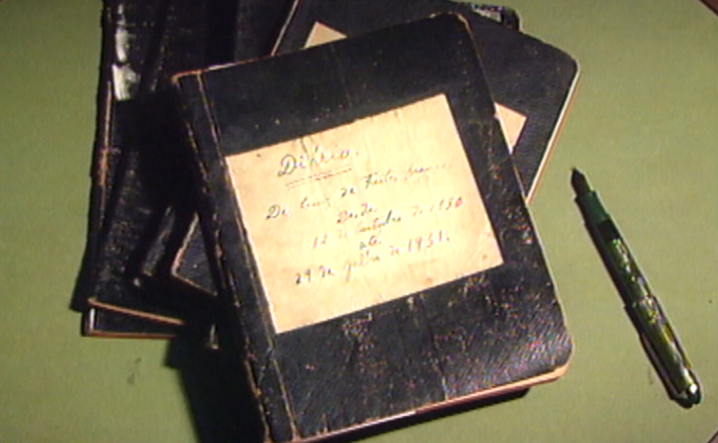 Diário.
De Luiz de Freitas Branco.
Desde
12 de outubro de 1950
até
29 de julho de 1951.